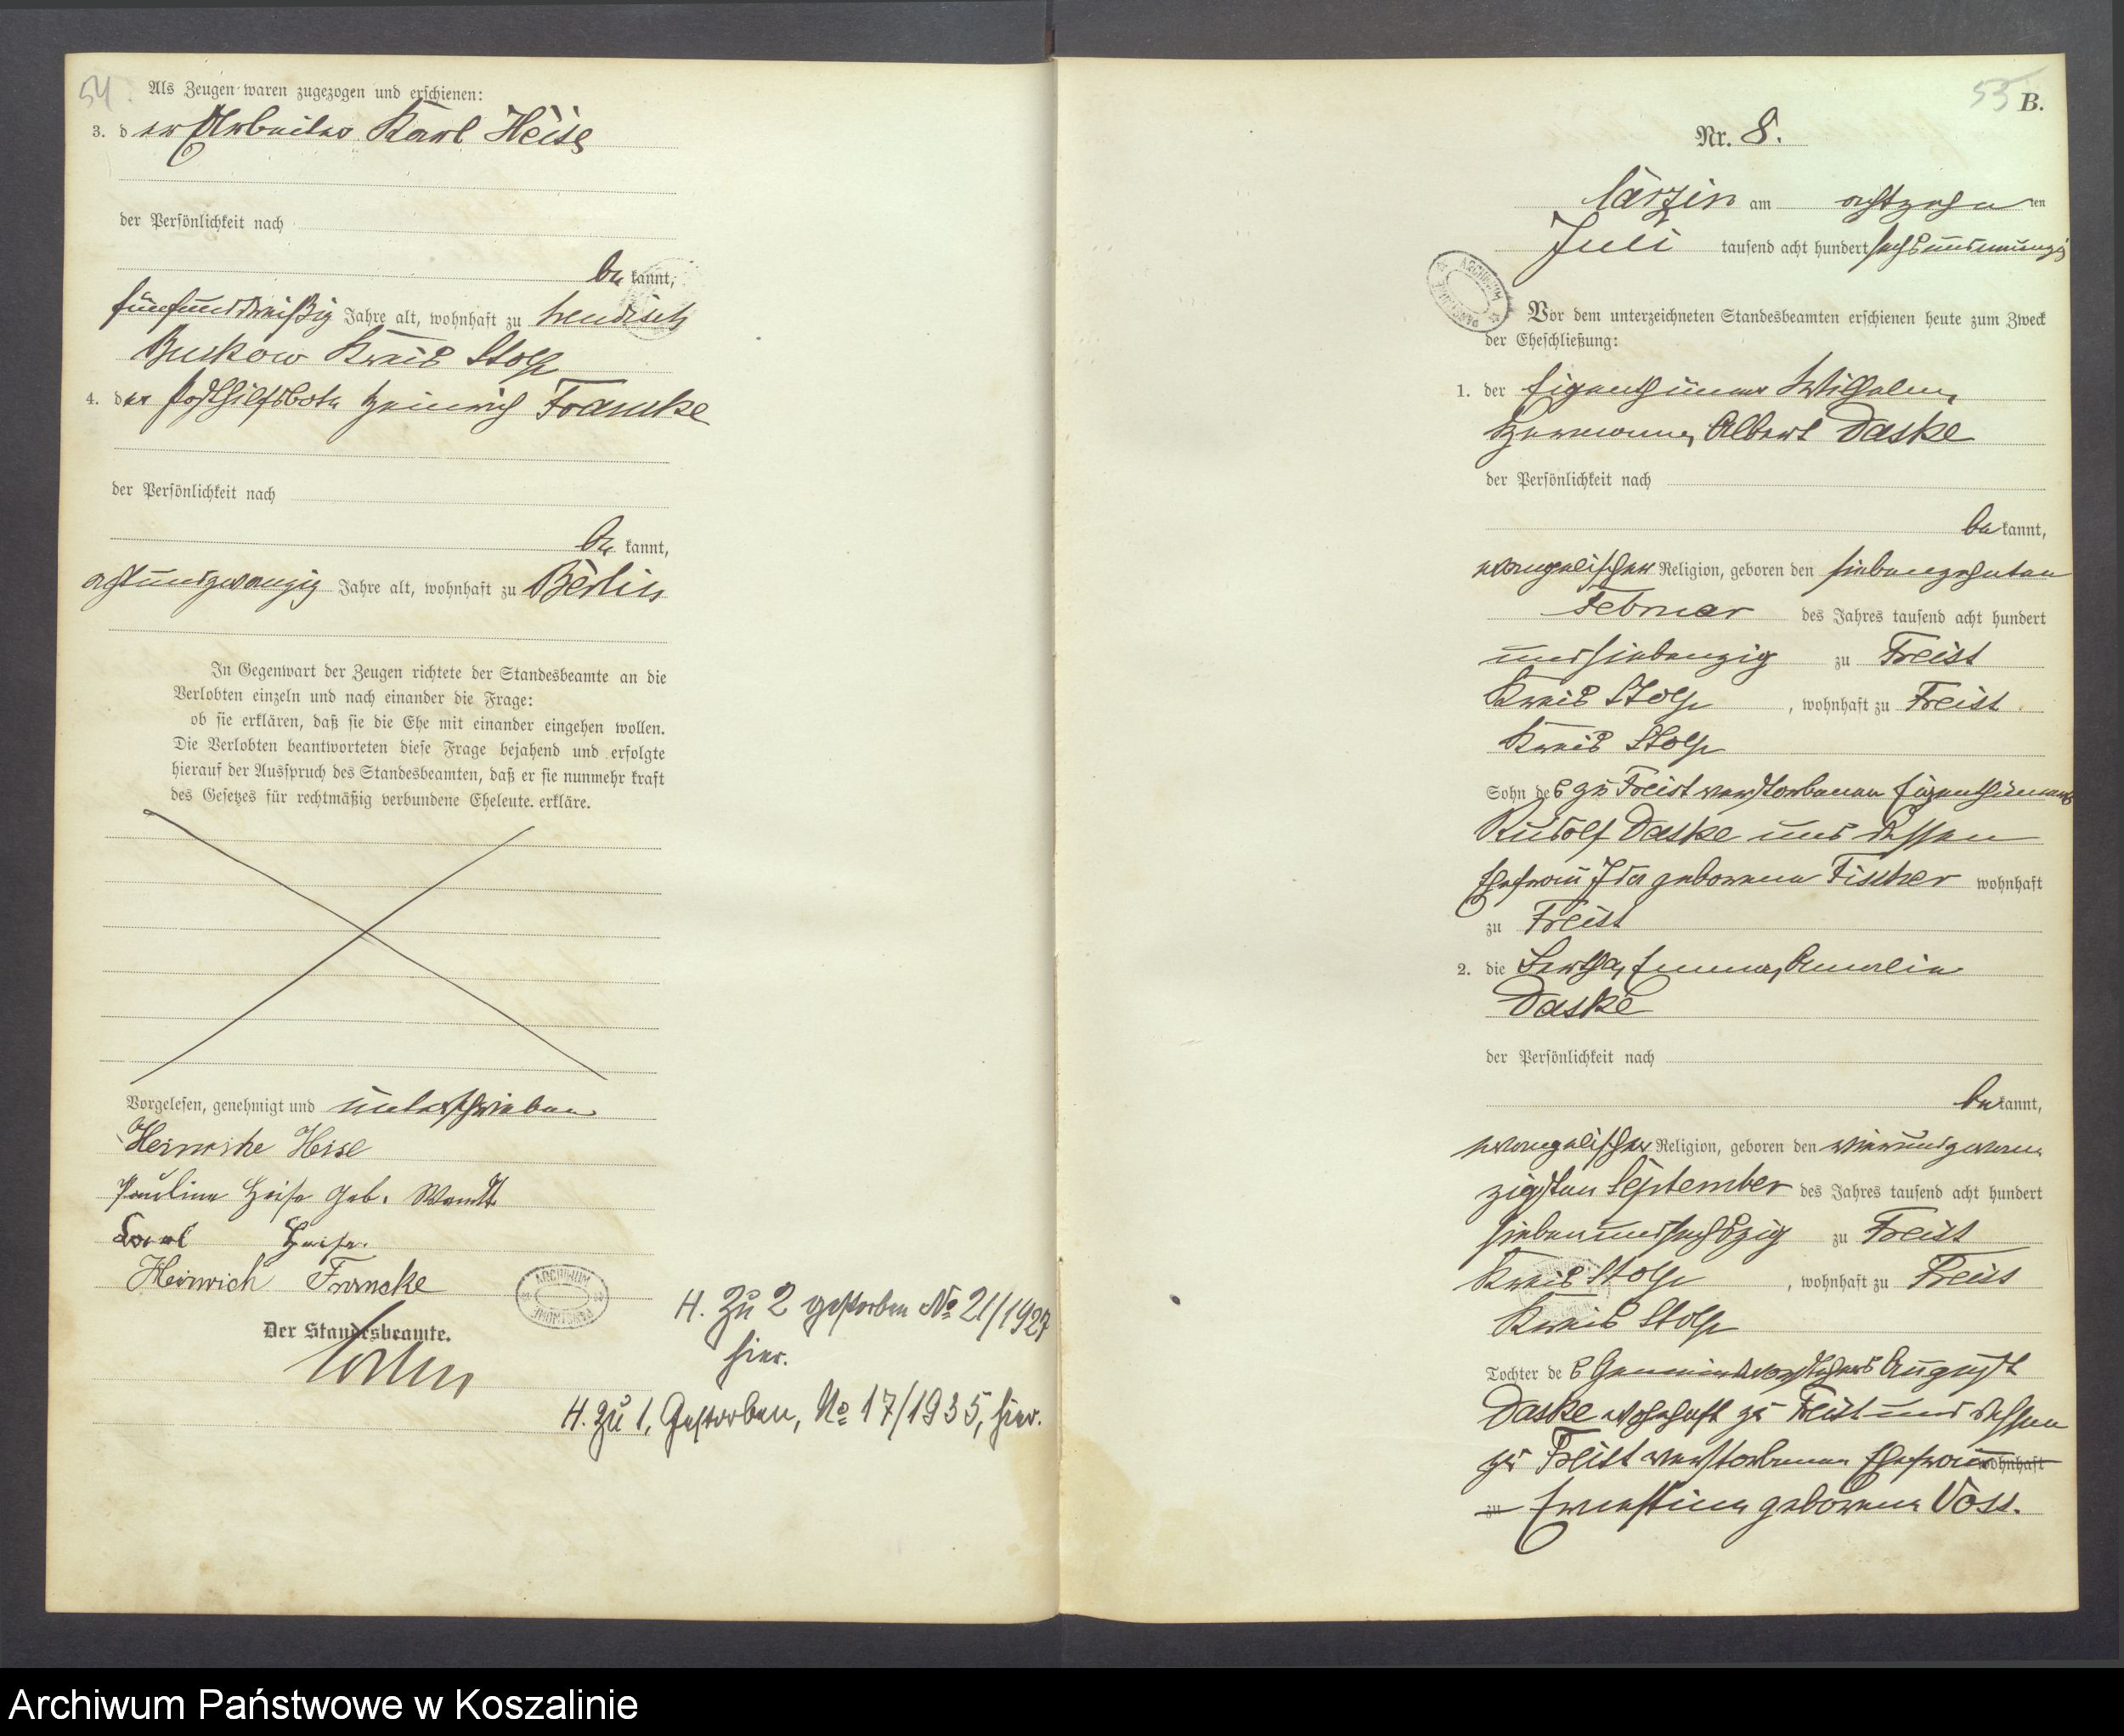 54.
Als Zeugen waren zugezogen und erschienen:
3. d er Arbeiter Karl Heise
der Persönlichkeit nach
be kannt,
fünfunddreißig Jahre alt, wohnhaft zu Wendisch
Buckow Kreis Stolp
4. der Posthilfsbote Heinrich Francke
der Persönlichkeit nach
be kannt,
achtundzwanzig Jahre alt, wohnhaft zu Berlin
In Gegenwart der Zeugen richtete der Standesbeamte an die
Verlobten einzeln und nach einander die Frage:
ob sie erklären, daß sie die Ehe mit einander eingehen wollen.
Die Verlobten beantworteten diese Frage bejahend und erfolgte
hierauf der Ausspruch des Standesbeamten, daß er sie nunmehr kraft
des Gesetzes für rechtmäßig verbundene Eheleute erkläre.
Vorgelesen, genehmigt und unterschrieben
Heise
Pauline Heise geb. Wendt
Karl Heise.
Heinrich Francke
ARCHIWUM
Der Standesbeamte.
H. Zu 2 gestorben No 21/1927
hier.
H. Zu 1, Gestorben, No 17/1935, hier.
53
B.
Nr. 8.
am achtzehn ten
Juli tausend acht hundert sechsundneunzig
ARCHIWUM
Vor dem unterzeichneten Standesbeamten erschienen heute zum Zweck
der Eheschließung:
1. der Eigenthümer Wilhelm,
Hermann, Albert Daske
der Persönlichkeit nach
be kannt,
evangelischer Religion, geboren den siebenzehnten
Februar des Jahres tausend acht hundert
undsiebenzig zu Freist
Kreis Stolp, wohnhaft zu Freist
Kreis Stolp
Sohn des zu Freist verstorbenen Eigenthümers
Rudolf Daske und dessen
Ehefrau Ida geborene Fischer wohnhaft
zu Freist
2. die Bertha, Emma, Amalie
Daske
der Persönlichkeit nach
be kannt,
evangelischer Religion, geboren den vierundzwan-
zigsten September des Jahres tausend acht hundert
siebenundsechszig zu Freist
Kreis Stolp, wohnhaft zu Freist
Kreis Stolp
Tochter des Gemeindevorstehers August
Daske wohnhaft zu Freist und dessen
zu Freist verstorbenen Ehefrau wohnhaft
zu Ernestine geborene Voss.
Archiwum Państwowe w Koszalinie